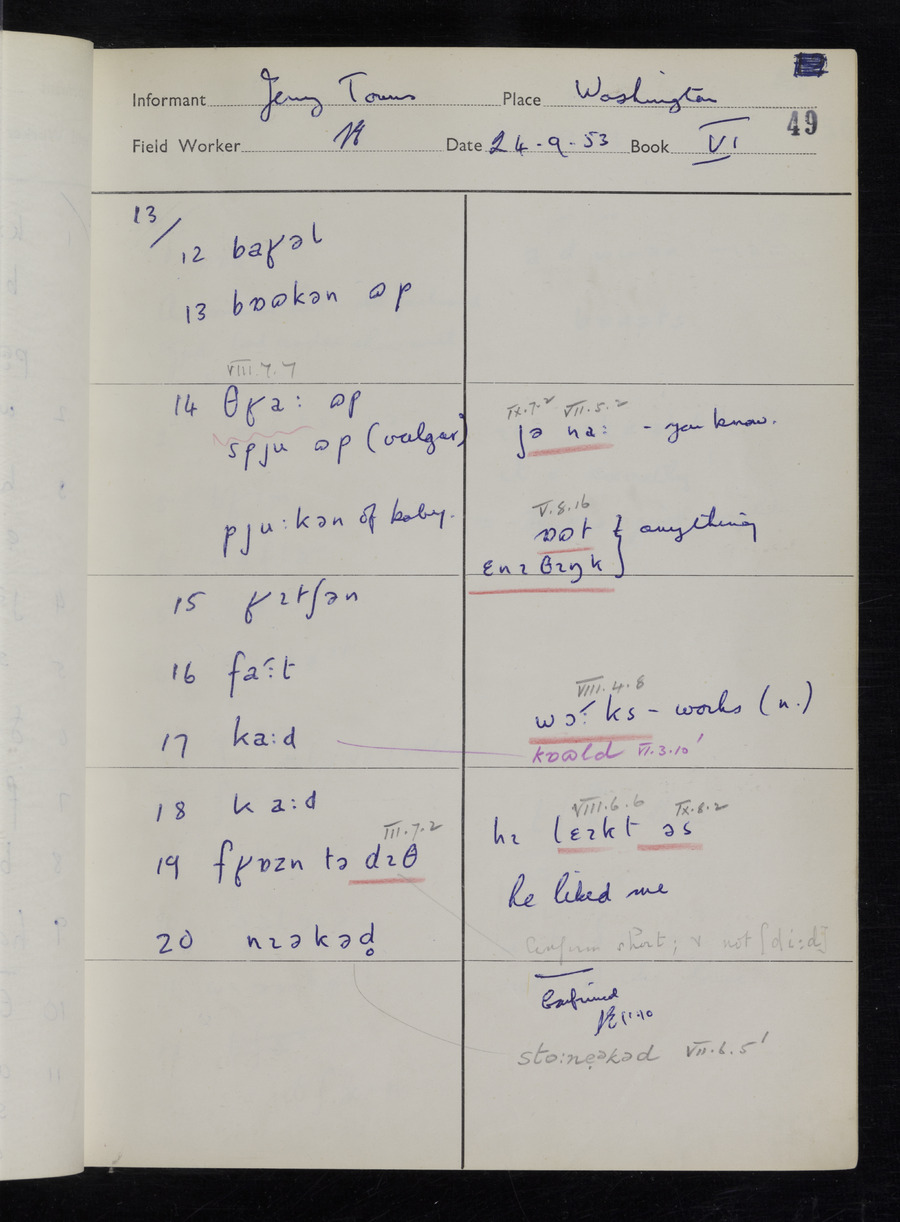 Informant Jerry Towns Place Washington
49
Field Worker Date 24-9-53 Book VI
13/
12 baʁəl
13 bɒɷkən ɷp
VIII.7.7
14 θʁa: ɷp
spju ɷp (vulgar)
pju:kən of baby.
15 ʁɪtʃən
16 fa:t
17 ka:d
18 ka:d
III.7.2
19 fʁɒzn tə dɪθ
20 nɪəkəd̥
IX.7.2 VII.5.2
jə na: - you know.
V.8.16
ɒɷt } anything
ɛnɪθɪŋk
VIII.4.8
wɔ:ks - works (n.)
kɒɷld VI.3.10'
VIII.6.6 IX.8.2
hɪ lɛɪkt əs
he liked me
Confirm short; & not [di:d]
Confirmed
11.10
stɑ:nẹəkəd VII.6.5'